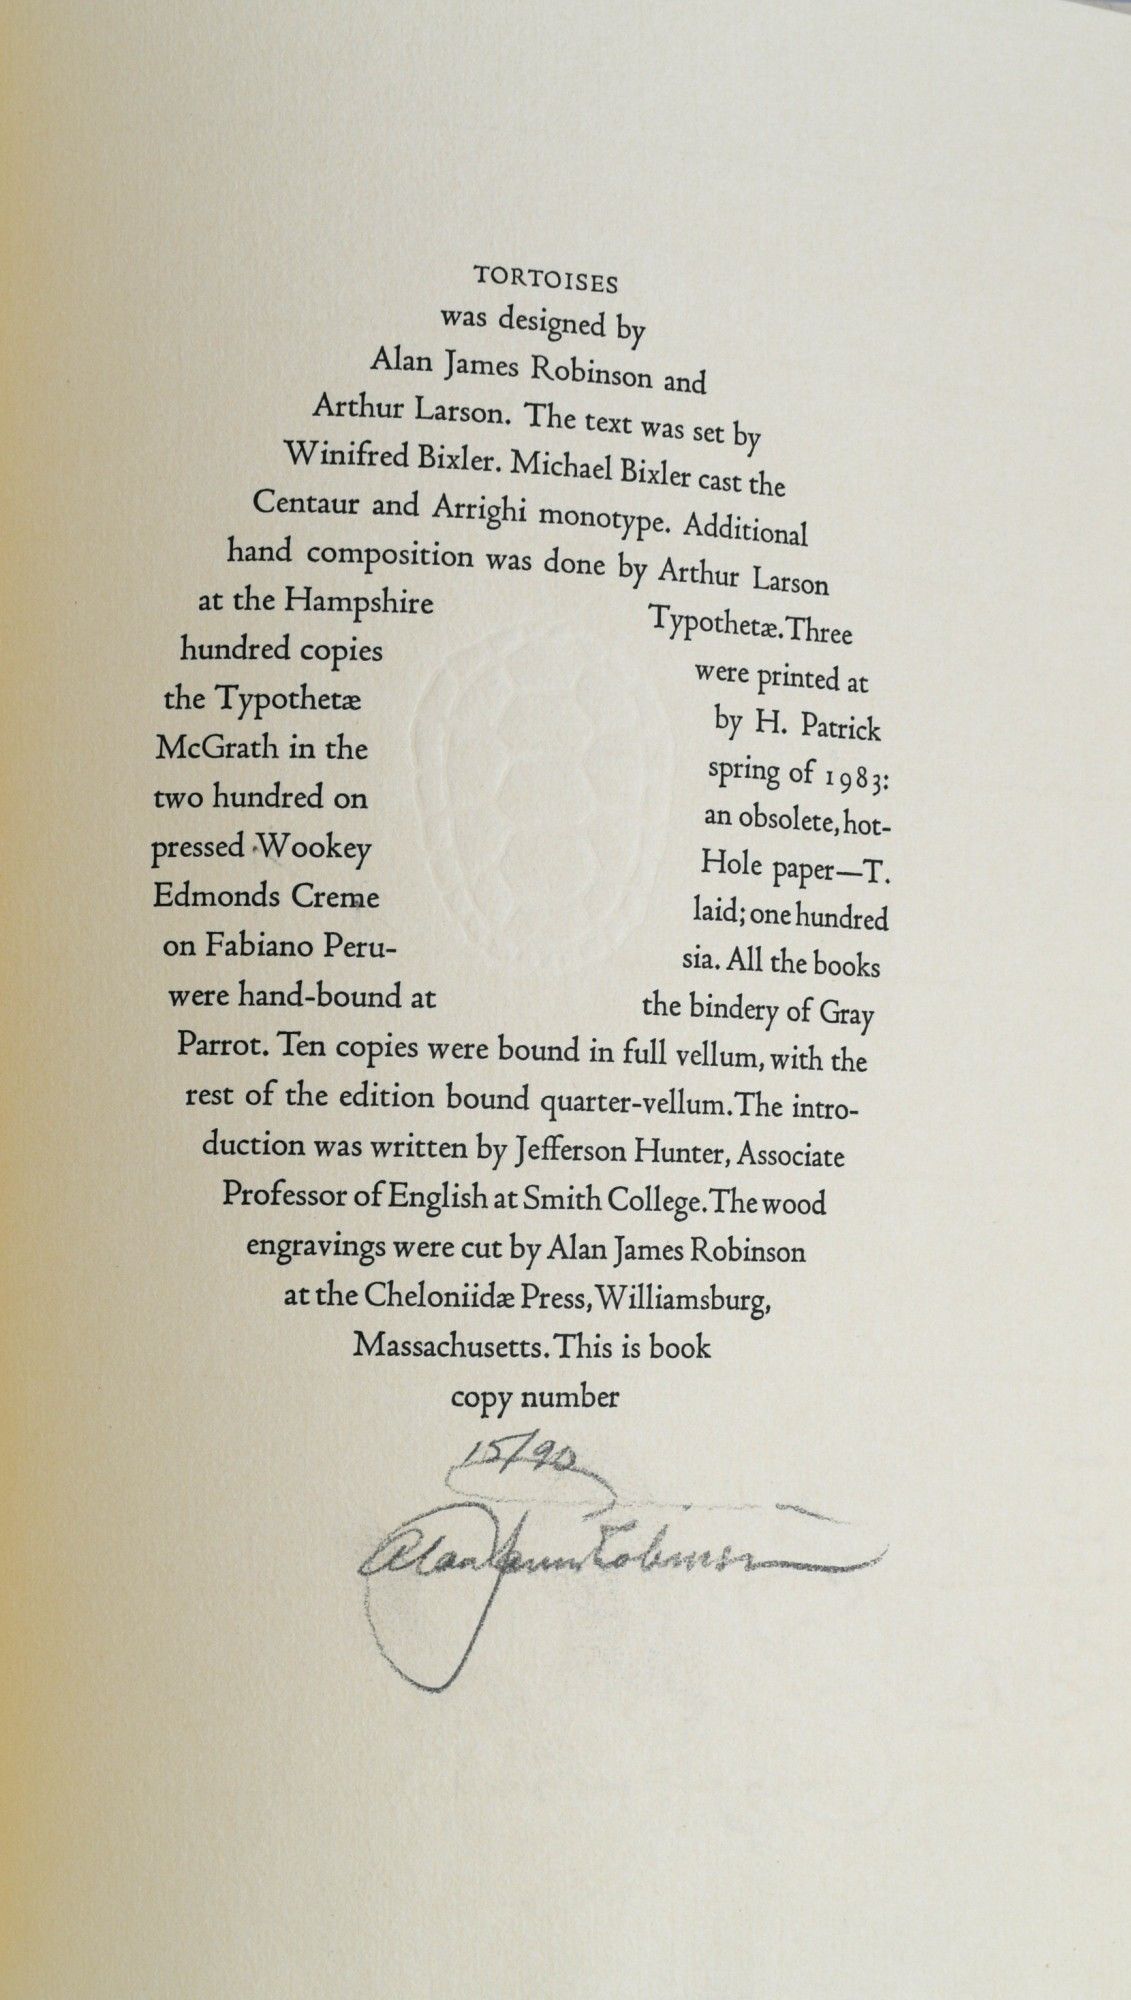 TORTOISES
was designed by
Alan James Robinson and
Arthur Larson. The text was set by
Winifred Bixler. Michael Bixler cast the
Centaur and Arrighi monotype. Additional
hand composition was done by Arthur Larson
at the Hampshire Typothetæ. Three
hundred copies were printed at
the Typothetæ by H. Patrick
McGrath in the spring of 1983:
two hundred on an obsolete, hot-
pressed Wookey Hole paper—T.
Edmonds Creme laid; one hundred
on Fabiano Peru- sia. All the books
were hand-bound at the bindery of Gray
Parrot. Ten copies were bound in full vellum, with the
rest of the edition bound quarter-vellum. The intro-
duction was written by Jefferson Hunter, Associate
Professor of English at Smith College. The wood
engravings were cut by Alan James Robinson
at the Cheloniidæ Press, Williamsburg,
Massachusetts. This is book
copy number
15/90
Alan James Robinson